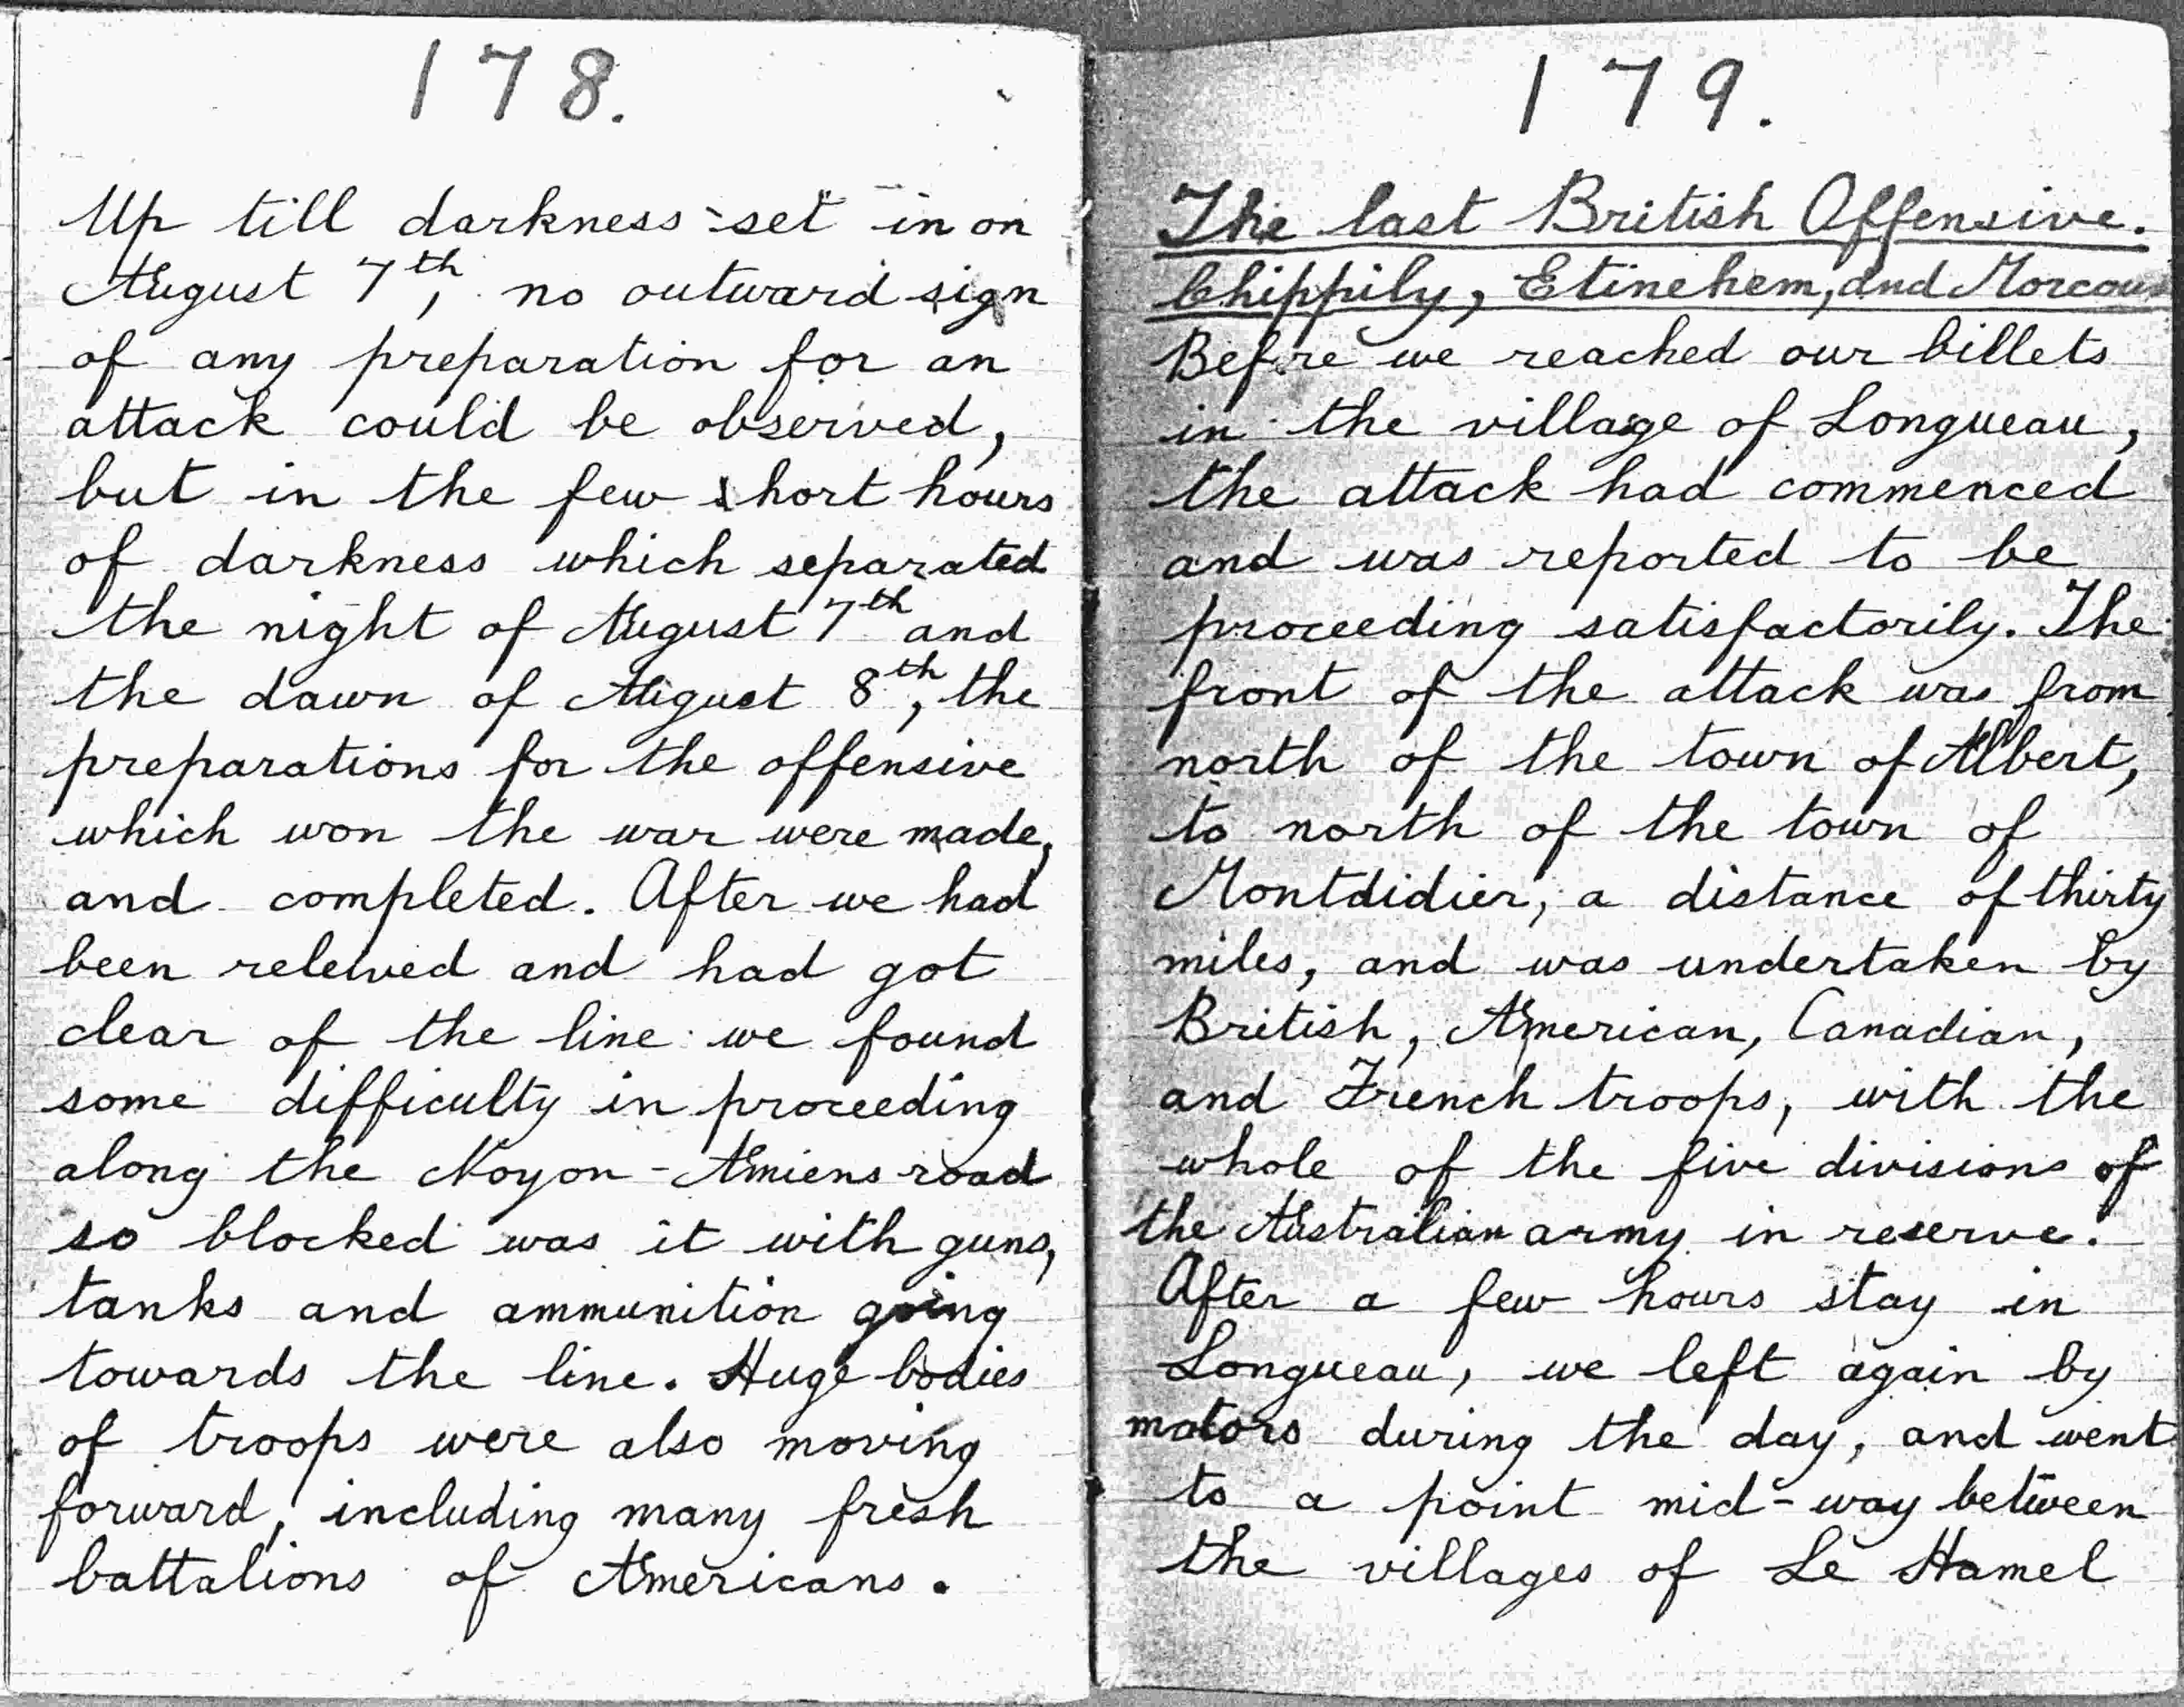 178.
Up till darkness set in on
August 7th, no outward sign
of any preparation for an
attack could be observed,
but in the few short hours
of darkness which separated
the night of August 7th and
the dawn of August 8th, the
preparations for the offensive
which won the war were made,
and completed. After we had
been releived and had got
clear of the line we found
some difficulty in proceeding
along the Noyon-Amiens road
so blocked was it with guns,
tanks and ammunition going
towards the line. Huge bodies
of troops were also moving
forward, including many fresh
battalions of Americans.
179.
The last British Offensive.
Chippily, Etinehem, and Morcourt
Before we reached our billets
in the village of Longueau,
the attack had commenced
and was reported to be
proceeding satisfactorily. The
front of the attack was from
north of the town of Albert,
to north of the town of
Montdidier, a distance of thirty
miles, and was undertaken by
British, American, Canadian,
and French troops, with the
whole of the five divisions of
the Australian army in reserve.
After a few hours stay in
Longueau, we left again by
motors during the day, and went
to a point mid-way between
the villages of Le Hamel